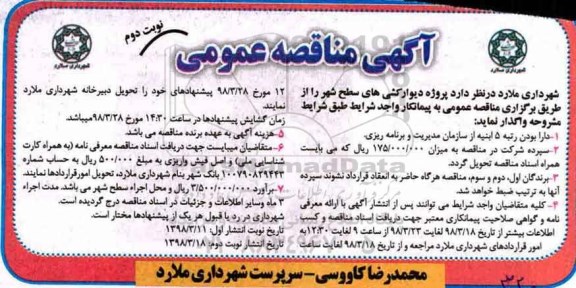 نوبت دوم
آگهی مناقصه عمومی
شهرداری ملارد
شهرداری ملارد
شهرداری ملارد درنظر دارد پروژه دیوارکشی های سطح شهر را از
طریق برگزاری مناقصه عمومی به پیمانکار واجد شرایط طبق شرایط
مشروحه واگذار نماید:
۱-دارا بودن رتبه ۵ ابنیه از سازمان مدیریت و برنامه ریزی.
۲-سپرده شرکت در مناقصه به میزان ۱۷۵/۰۰۰/۰۰۰ ریال که می بایست
همراه اسناد مناقصه تحویل گردد.
۳-برندگان اول، دوم و سوم، مناقصه هرگاه حاضر به انعقاد قرارداد نشوند سپرده
آنها به ترتیب ضبط خواهد شد.
۴-کلیه متقاضیان واجد شرایط می توانند پس از انتشار آگهی با ارائه معرفی
نامه و گواهی صلاحیت پیمانکاری معتبر جهت دریافت اسناد مناقصه و کسب
اطلاعات بیشتر از تاریخ ۹۸/۳/۱۸ لغایت ۹۸/۳/۲۳ از ساعت ۹ لغایت ۱۲:۳۰ به
امور قراردادهای شهرداری ملارد مراجعه و از تاریخ ۹۸/۳/۱۸ لغایت ساعت
۱۲ مورخ ۹۸/۳/۲۸ پیشنهادهای خود را تحویل دبیرخانه شهرداری ملارد
نمایند.
زمان گشایش پیشنهادها در ساعت ۱۴:۳۰ مورخ ۹۸/۳/۲۸ میباشد.
۵-هزینه آگهی به عهده برنده مناقصه می باشد.
۶-متقاضیان میبایست جهت دریافت اسناد مناقصه معرفی نامه (به همراه کارت
شناسایی ملی) و اصل فیش واریزی به مبلغ ۵۰۰/۰۰۰ ریال به حساب شماره
۱۰۰۷۹۰۸۲۹۴۴۲ بانک شهر بنام شهرداری ملارد، تحویل امور قراردادها نمایند.
۷-برآورد ۳/۵۰۰/۰۰۰/۰۰۰ ریال و محل اجراء سطح شهر می باشد. مدت اجراء
۳ ماه وسایر اطلاعات و جزئیات در اسناد مناقصه درج گردیده است.
شهرداری در رد یا قبول هر یک از پیشنهادها مختار است.
تاریخ نوبت انتشار اول: ۱۳۹۸/۳/۱۱
تاریخ انتشار نوبت دوم: ۱۳۹۸/۳/۱۸
محمدرضا کاووسی - سرپرست شهرداری ملارد